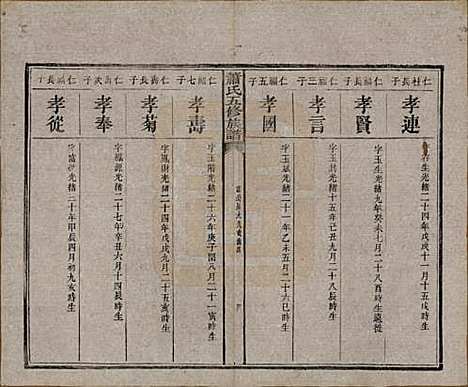 仁杜長子
孝連
生光緒二十四年戊戌十一月十五戌時生
仁福長子
孝賢
字玉光緒九年癸未七月二十八酉時生
仁福三子
孝言
字玉光緒十五年己丑九月二十八辰時生
仁福五子
孝國
字玉斌光緒二十一年乙未五月二十六巳時生
蕭氏五修族譜
仁福七子
孝壽
字玉階光緒二十六年庚子閏八月二十一寅時生
仁壽長子
孝菊
字鳳財光緒二十四年戊戌九月二十五亥時生
仁壽次子
孝奉
字光緒二十七年辛丑六月十四辰時生
仁長子
孝從
字富光緒三十年甲辰四月初九亥時生